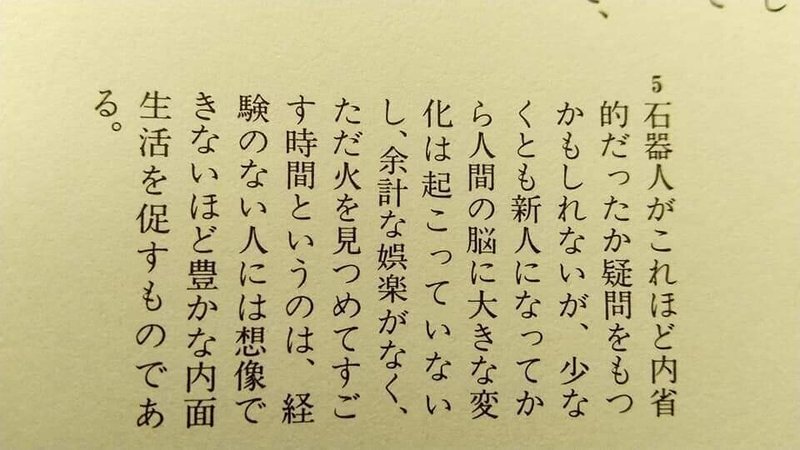 5 石器人がこれほど内省
的だったか疑問をもつ
かもしれないが、少な
くとも新人になってか
ら人間の脳に大きな変
化は起こっていない
し、余計な娯楽がなく、
ただ火を見つめてすご
す時間というのは、経
験のない人には想像で
きないほど豊かな内面
生活を促すものであ
る。